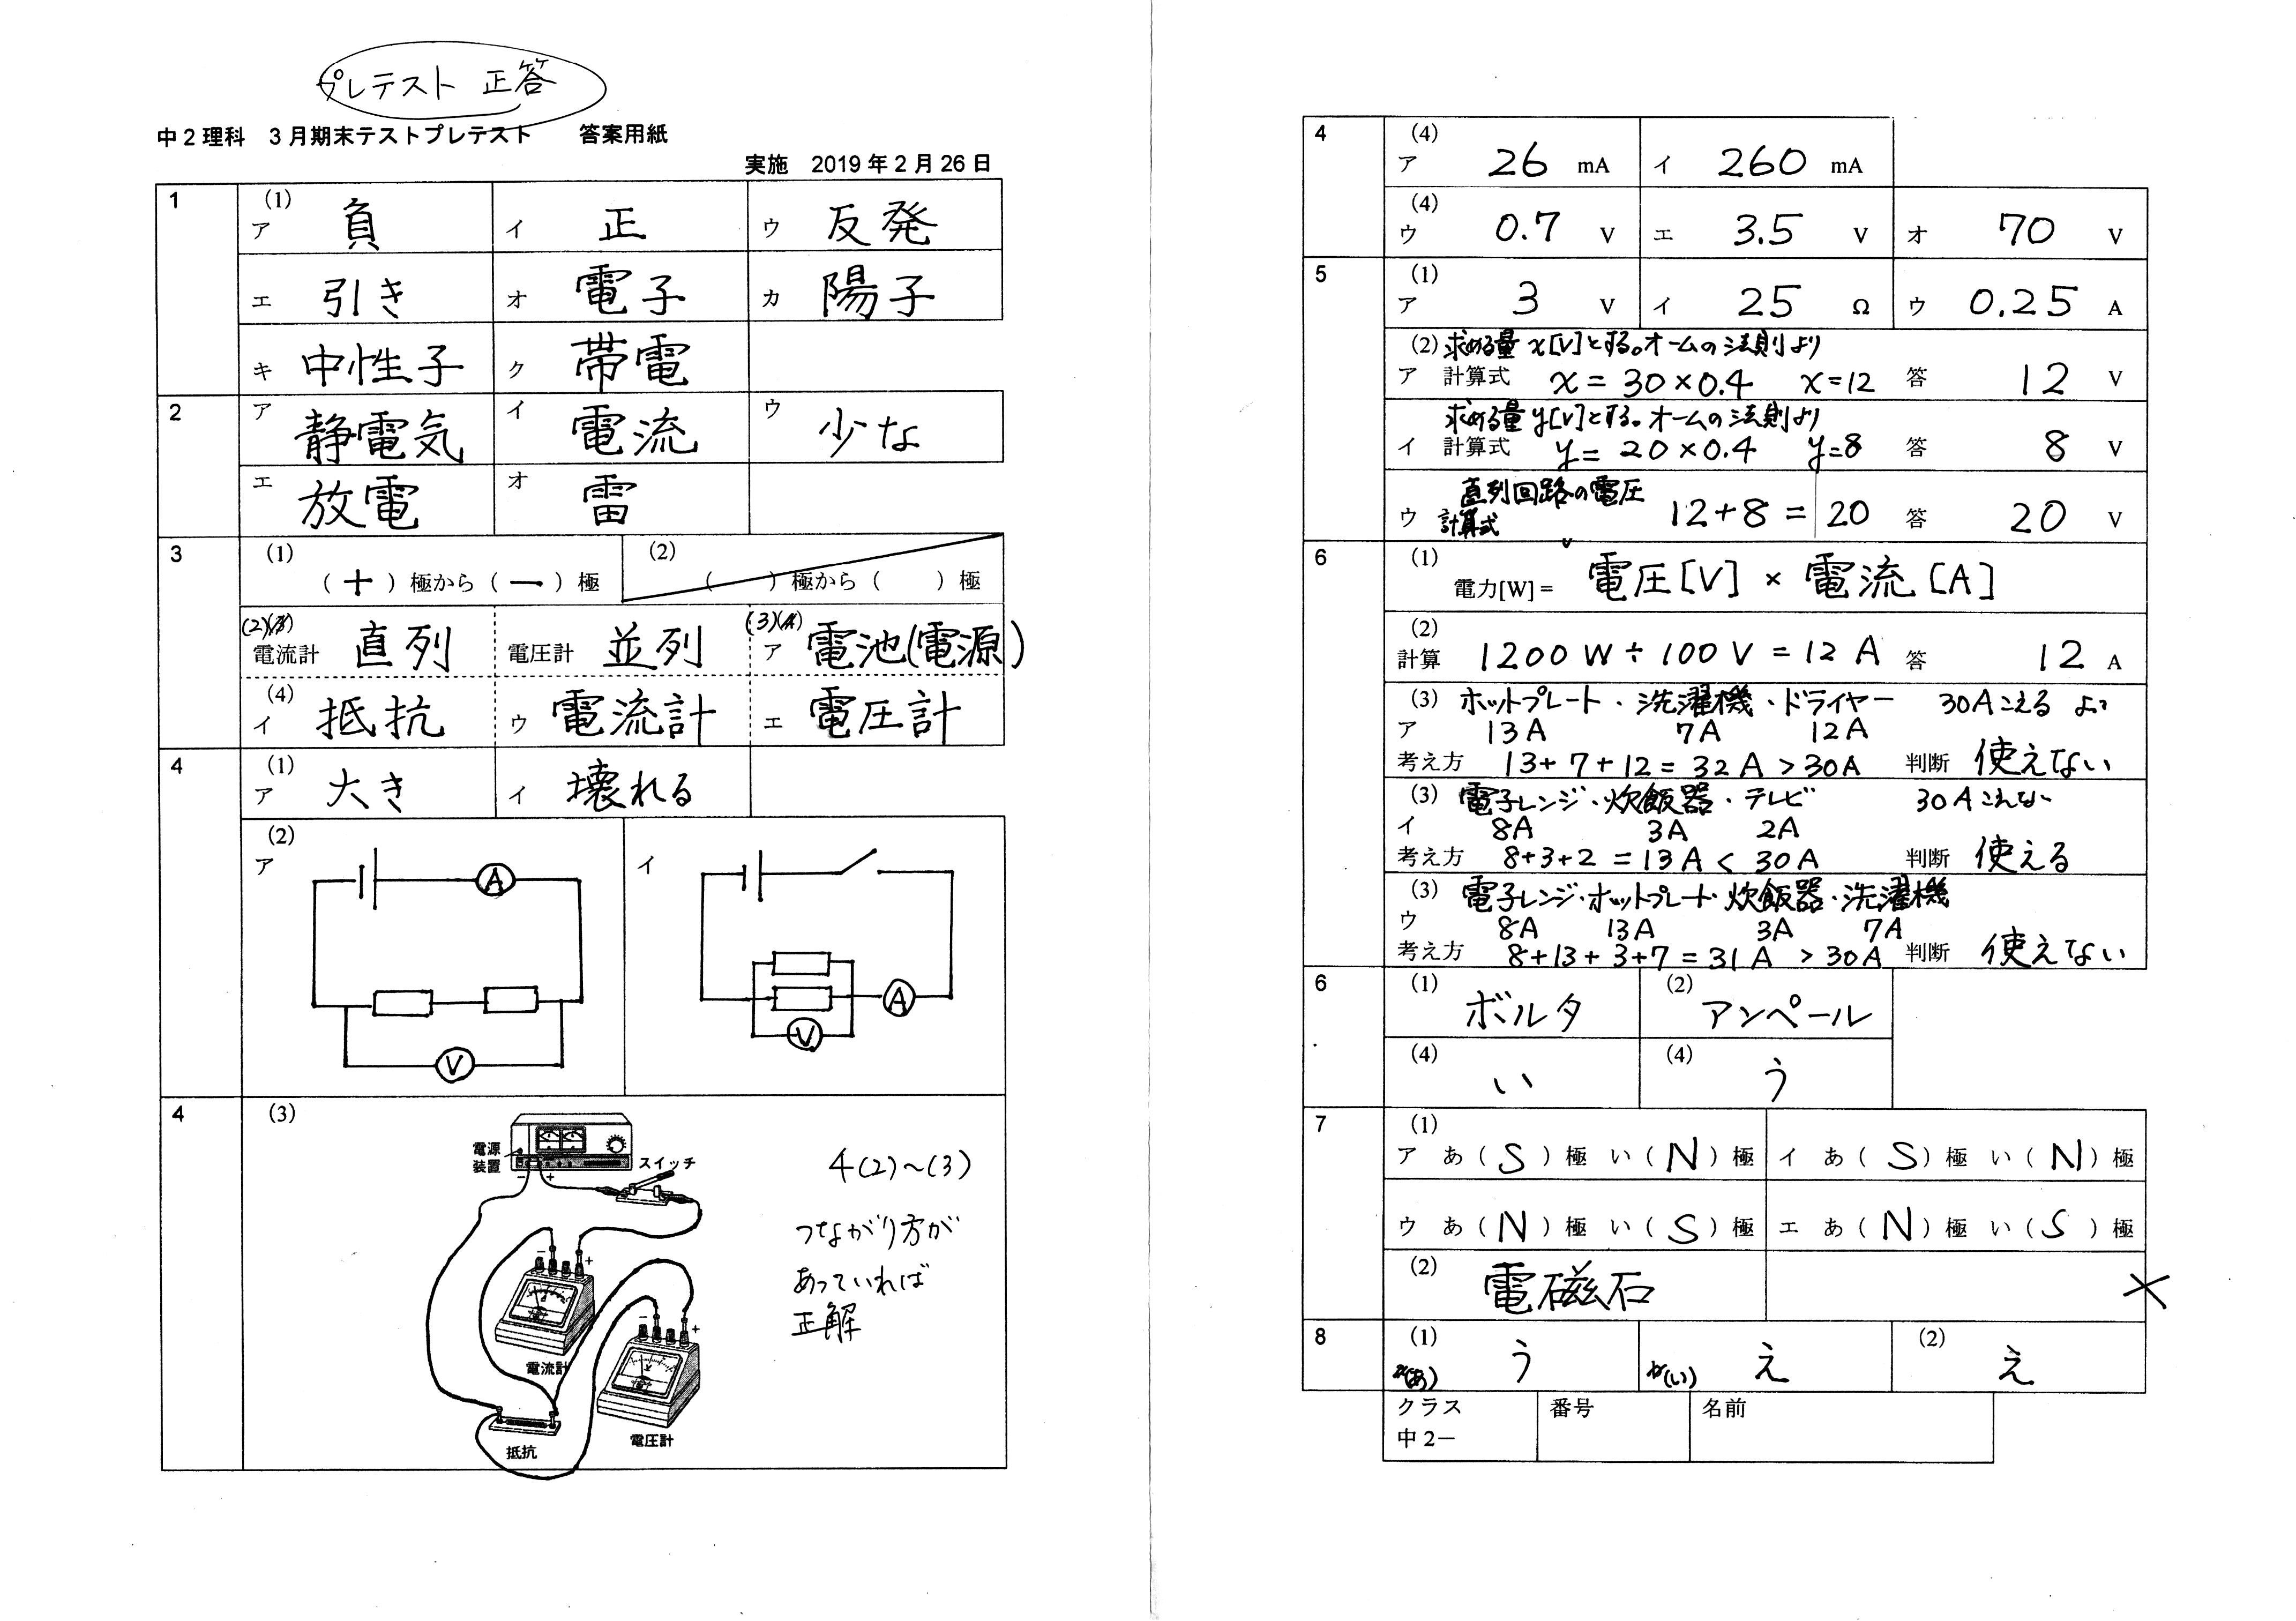 プレテスト 正答
中2理科 3月期末テストプレテスト 答案用紙
実施 2019年2月26日
1 (1)
ア 負 イ 正 ウ 反発
エ 引き オ 電子 カ 陽子
キ 中性子 ク 帯電
2 ア 静電気 イ 電流 ウ 少な
エ 放電 オ 雷
3 (1) (2)
(+)極から(ー)極 ( )極から( )極
(2) (3)
電流計 直列 電圧計 並列 ア 電池(電源)
(4)
イ 抵抗 ウ 電流計 エ 電圧計
4 (1)
ア 大き イ 壊れる
(2)
ア イ
A
A
V
V
4 (3)
電源装置
スイッチ
− +
− +
電流計
− +
電圧計
抵抗
4(2)〜(3)
つながり方が
あっていれば
正解
4 (4)
ア 26 mA イ 260 mA
(4)
ウ 0.7 V エ 3.5 V オ 70 V
5 (1)
ア 3 V イ 25 Ω ウ 0.25 A
(2) 求める量x[V]とする。オームの法則より
ア 計算式 x=30×0.4 x=12 答 12 V
求める量y[V]とする。オームの法則より
イ 計算式 y=20×0.4 y=8 答 8 V
直列回路の電圧
ウ 計算式 12+8=20 答 20 V
6 (1)
電力[W]= 電圧[V]×電流[A]
(2)
計算 1200W÷100V=12A 答 12 A
(3) ホットプレート・洗濯機・ドライヤー 30Aこえる よって
ア 13A 7A 12A
考え方 13+7+12=32A>30A 判断 使えない
(3) 電子レンジ・炊飯器・テレビ 30Aこえない
イ 8A 3A 2A
考え方 8+3+2=13A<30A 判断 使える
(3) 電子レンジ・ホットプレート・炊飯器・洗濯機
ウ 8A 13A 3A 7A
考え方 8+13+3+7=31A>30A 判断 使えない
6 (1) ボルタ (2) アンペール
(4) い (4) う
7 (1)
ア あ(S)極 い(N)極 イ あ(S)極 い(N)極
ウ あ(N)極 い(S)極 エ あ(N)極 い(S)極
(2) 電磁石
8 (1) (2)
(あ) う (い) え え
クラス 番号 名前
中2−